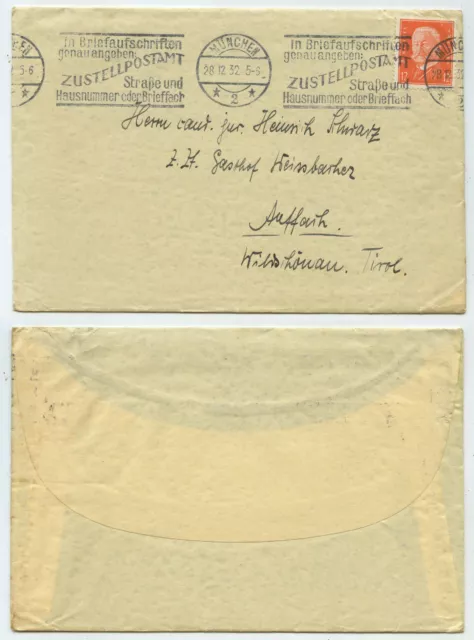 In Briefaufschriften
genau angeben:
ZUSTELLPOSTAMT
Straße und
Hausnummer oder Brieffach
MÜNCHEN
28.12.32.5-6
* 2 *
In Briefaufschriften
genau angeben:
ZUSTELLPOSTAMT
Straße und
Hausnummer oder Brieffach
12
Herrn cand. jur. Heinrich Schwarz
z. Zt. Gasthof Weissbacher
Auffach.
Wildschönau. Tirol.